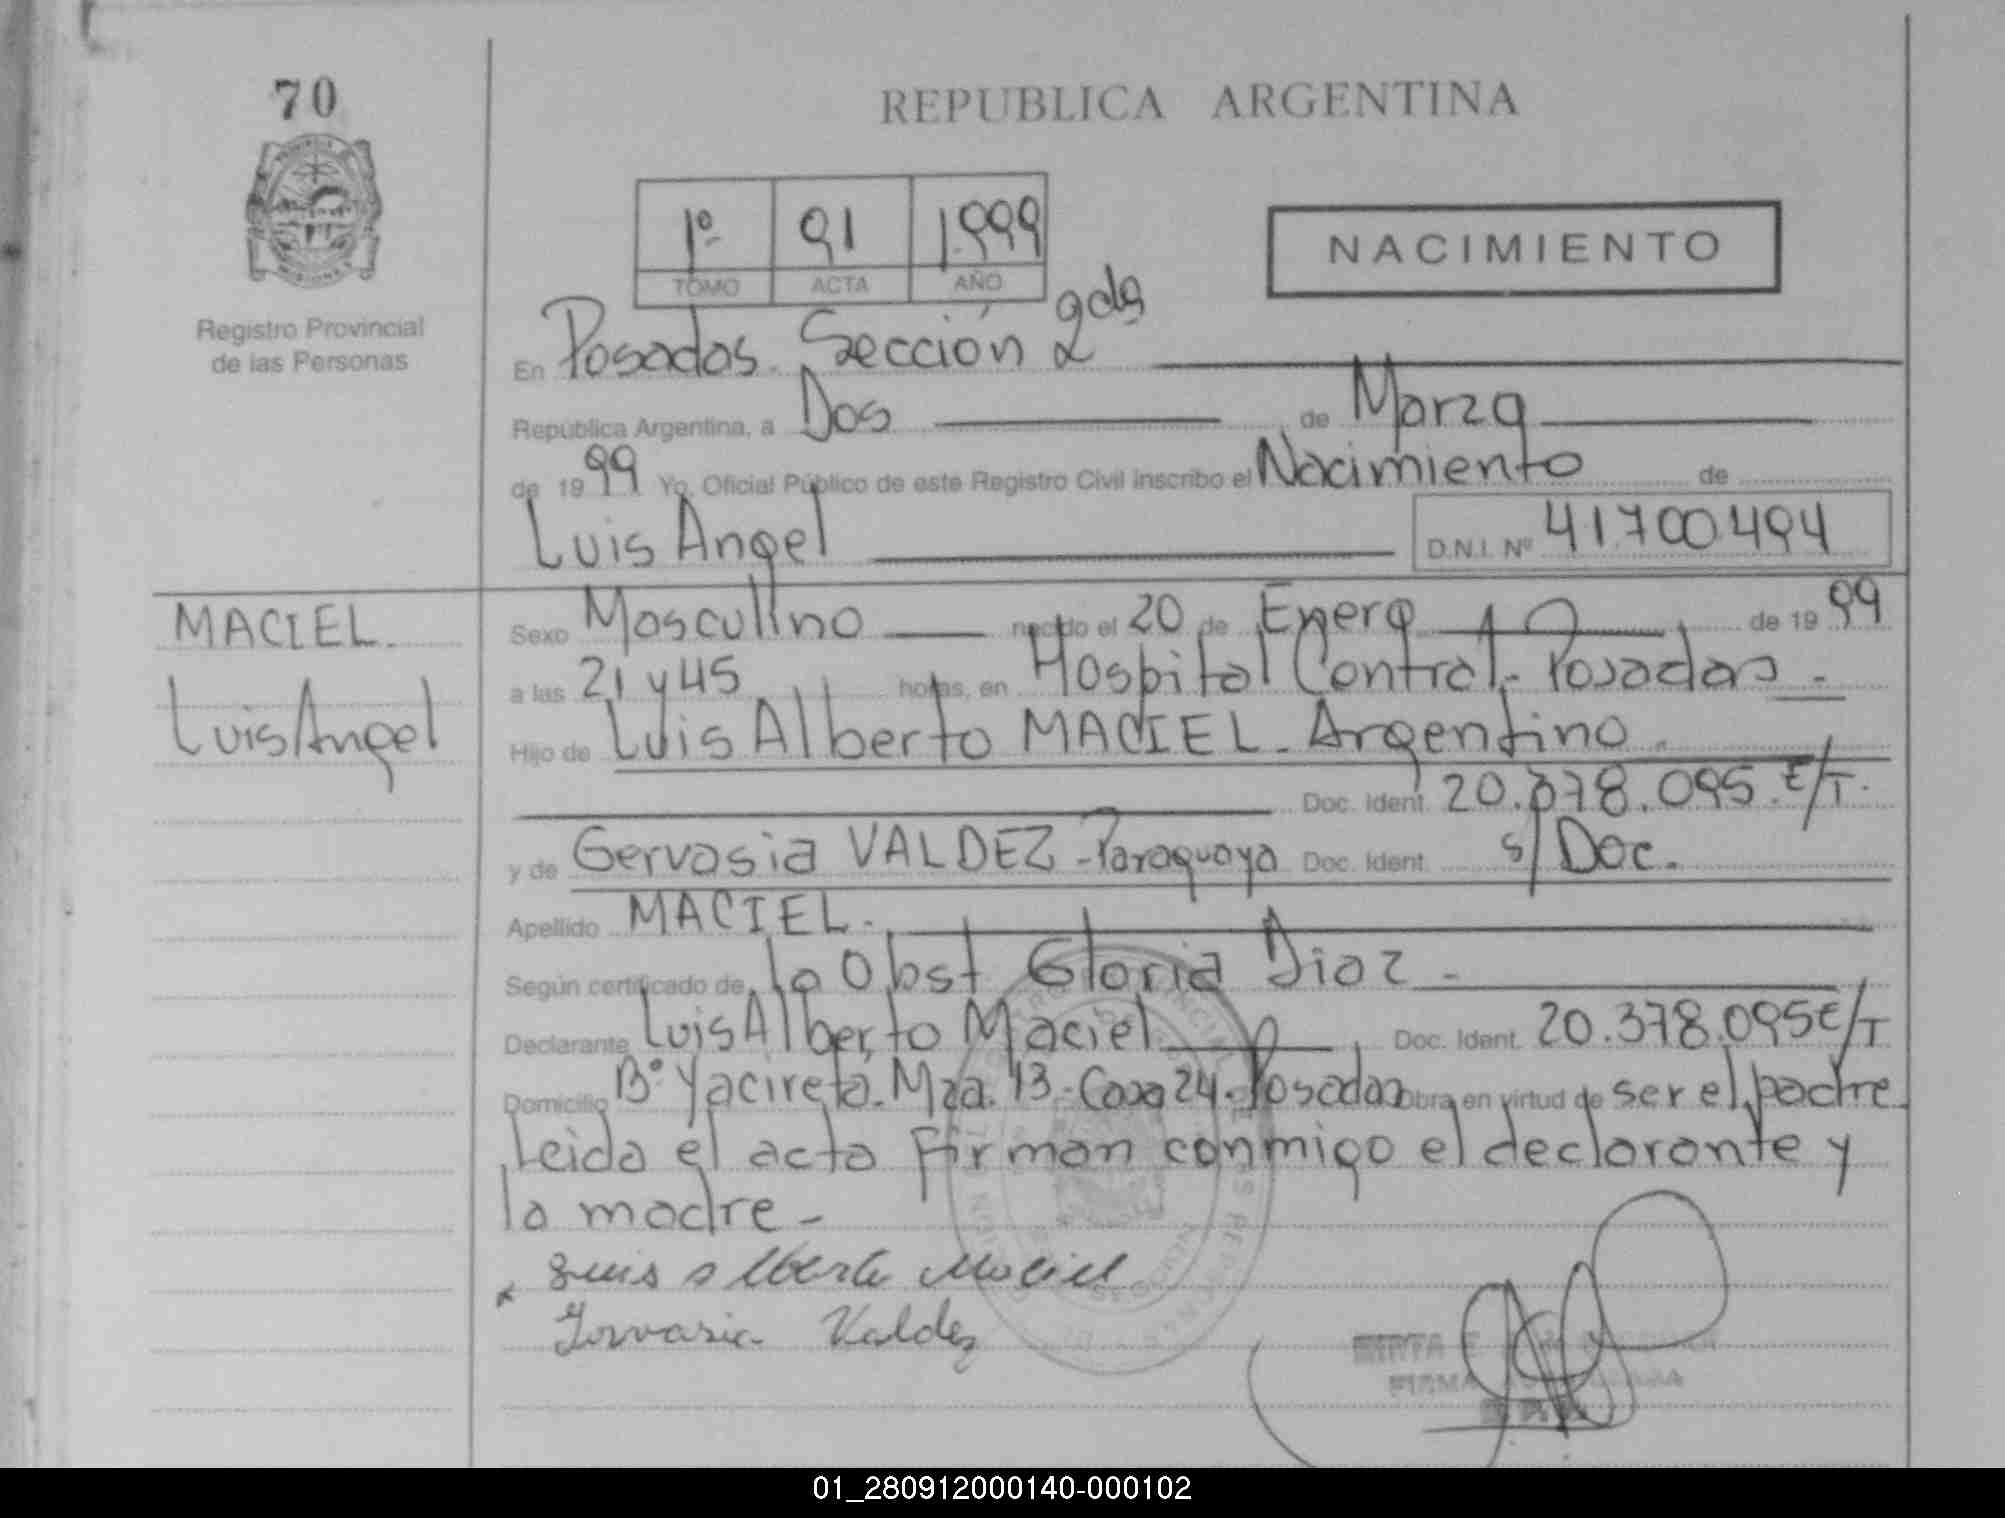 70
REPUBLICA ARGENTINA
1º 91 1.999
TOMO ACTA AÑO
NACIMIENTO
Registro Provincial
de las Personas
En Posadas. Sección 2da
República Argentina, a Dos de Marzo
de 1999 Yo, Oficial Público de este Registro Civil inscribo el Nacimiento de
Luis Angel D.N.I. Nº 41.700.494
MACIEL.
Luis Angel
Sexo Masculino nacido el 20 de Enero de 1999
a las 21 y 45 horas, en Hospital Central.- Posadas.-
Hijo de Luis Alberto MACIEL - Argentino.
Doc. Ident. 20.378.095.E/T.
y de Gervasia VALDEZ - Paraguaya Doc. Ident. s/Doc.
Apellido MACIEL.
Según certificado de la Obst Gloria Diaz -
Declarante Luis Alberto Maciel Doc. Ident. 20.378.095E/T
Domicilio Bº Yacireta. Mza. 13 - Casa 24. Posadas Obra en virtud de ser el padre
Leida el acta firman conmigo el declarante y
la madre -
Luis Alberto Maciel
Gervasia Valdez
01_280912000140-000102